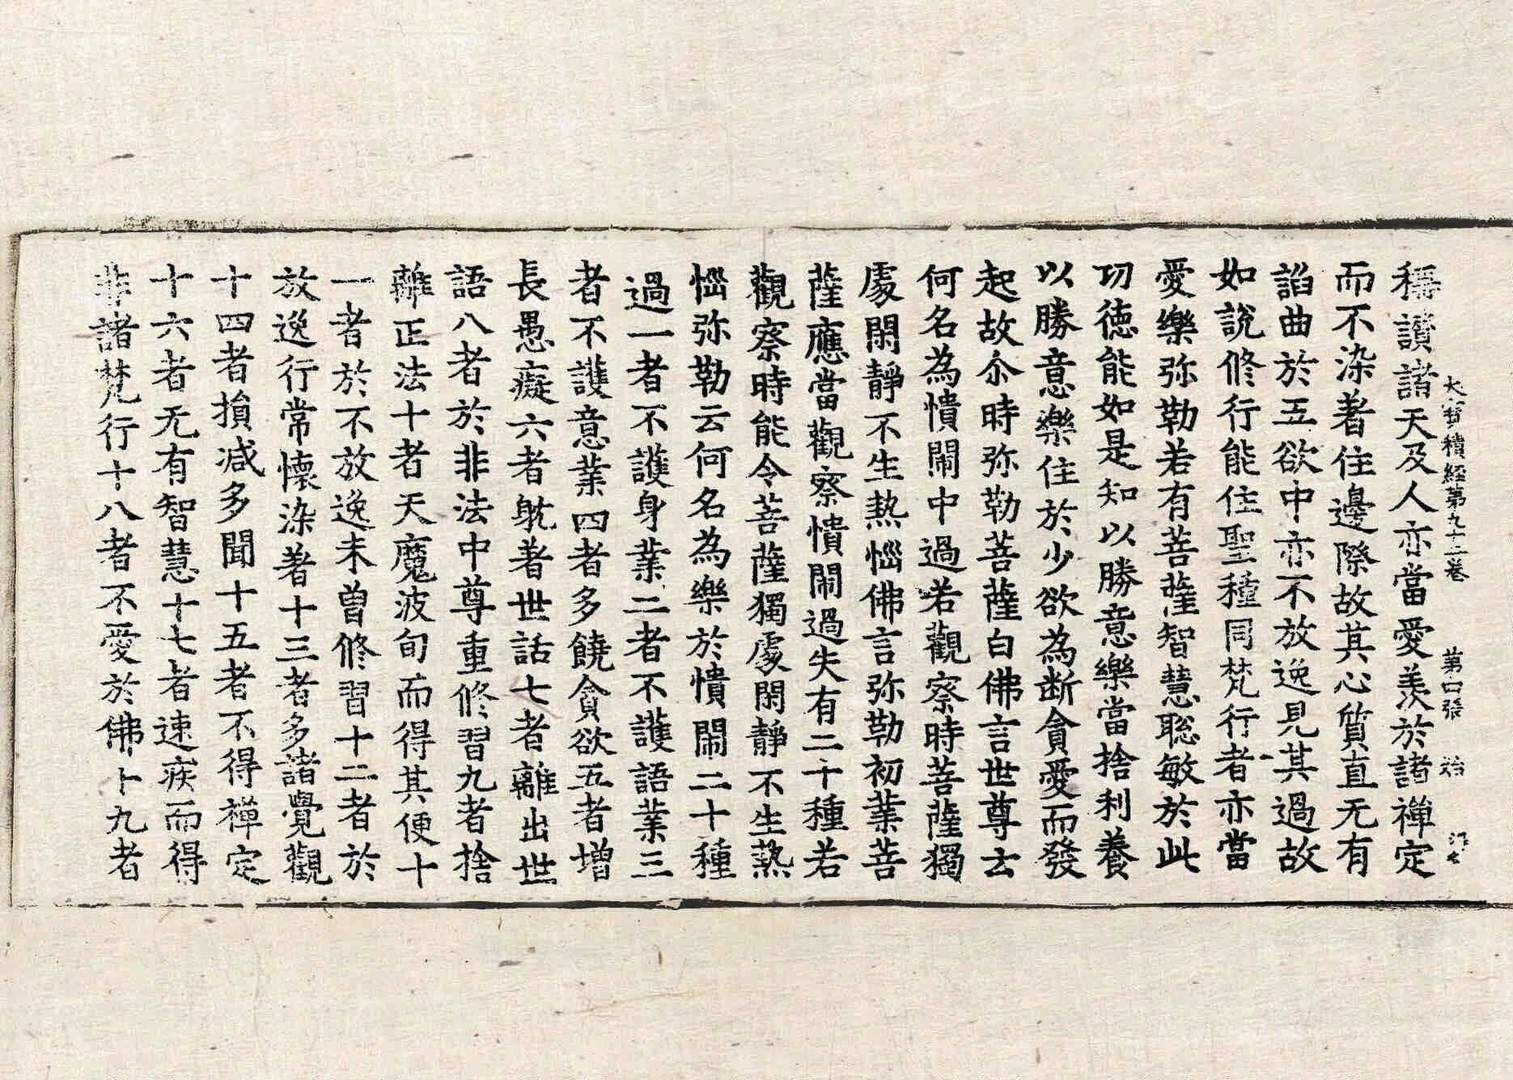 大寶積經第九十二卷 第口張 始
稱讃諸天及人亦當愛羨於諸禅定
而不染著住邊際故其心質直无有
諂曲於五欲中亦不放逸見其過故
如說修行能住聖種同梵行者亦當
愛樂弥勒若有菩薩智慧聡敏於此
功徳能如是知以勝意樂當捨利養
以勝意樂住於少欲為断貪愛而發
起故尒時弥勒菩薩白佛言世尊云
何名為憒閙中過若觀察時菩薩獨
處閑靜不生熱惱佛言弥勒初業菩
薩應當觀察憒閙過失有二十種若
觀察時能令菩薩獨處閑靜不生熱
惱弥勒云何名為樂於憒閙二十種
過一者不護身業二者不護語業三
者不護意業四者多饒貪欲五者增
長愚癡六者躭著世話七者離出世
語八者於非法中尊重修習九者捨
離正法十者天魔波旬而得其便十
一者於不放逸未曽修習十二者於
放逸行常懷染著十三者多諸覺觀
十四者損减多聞十五者不得禅定
十六者无有智慧十七者速疾而得
非諸梵行十八者不愛於佛十九者